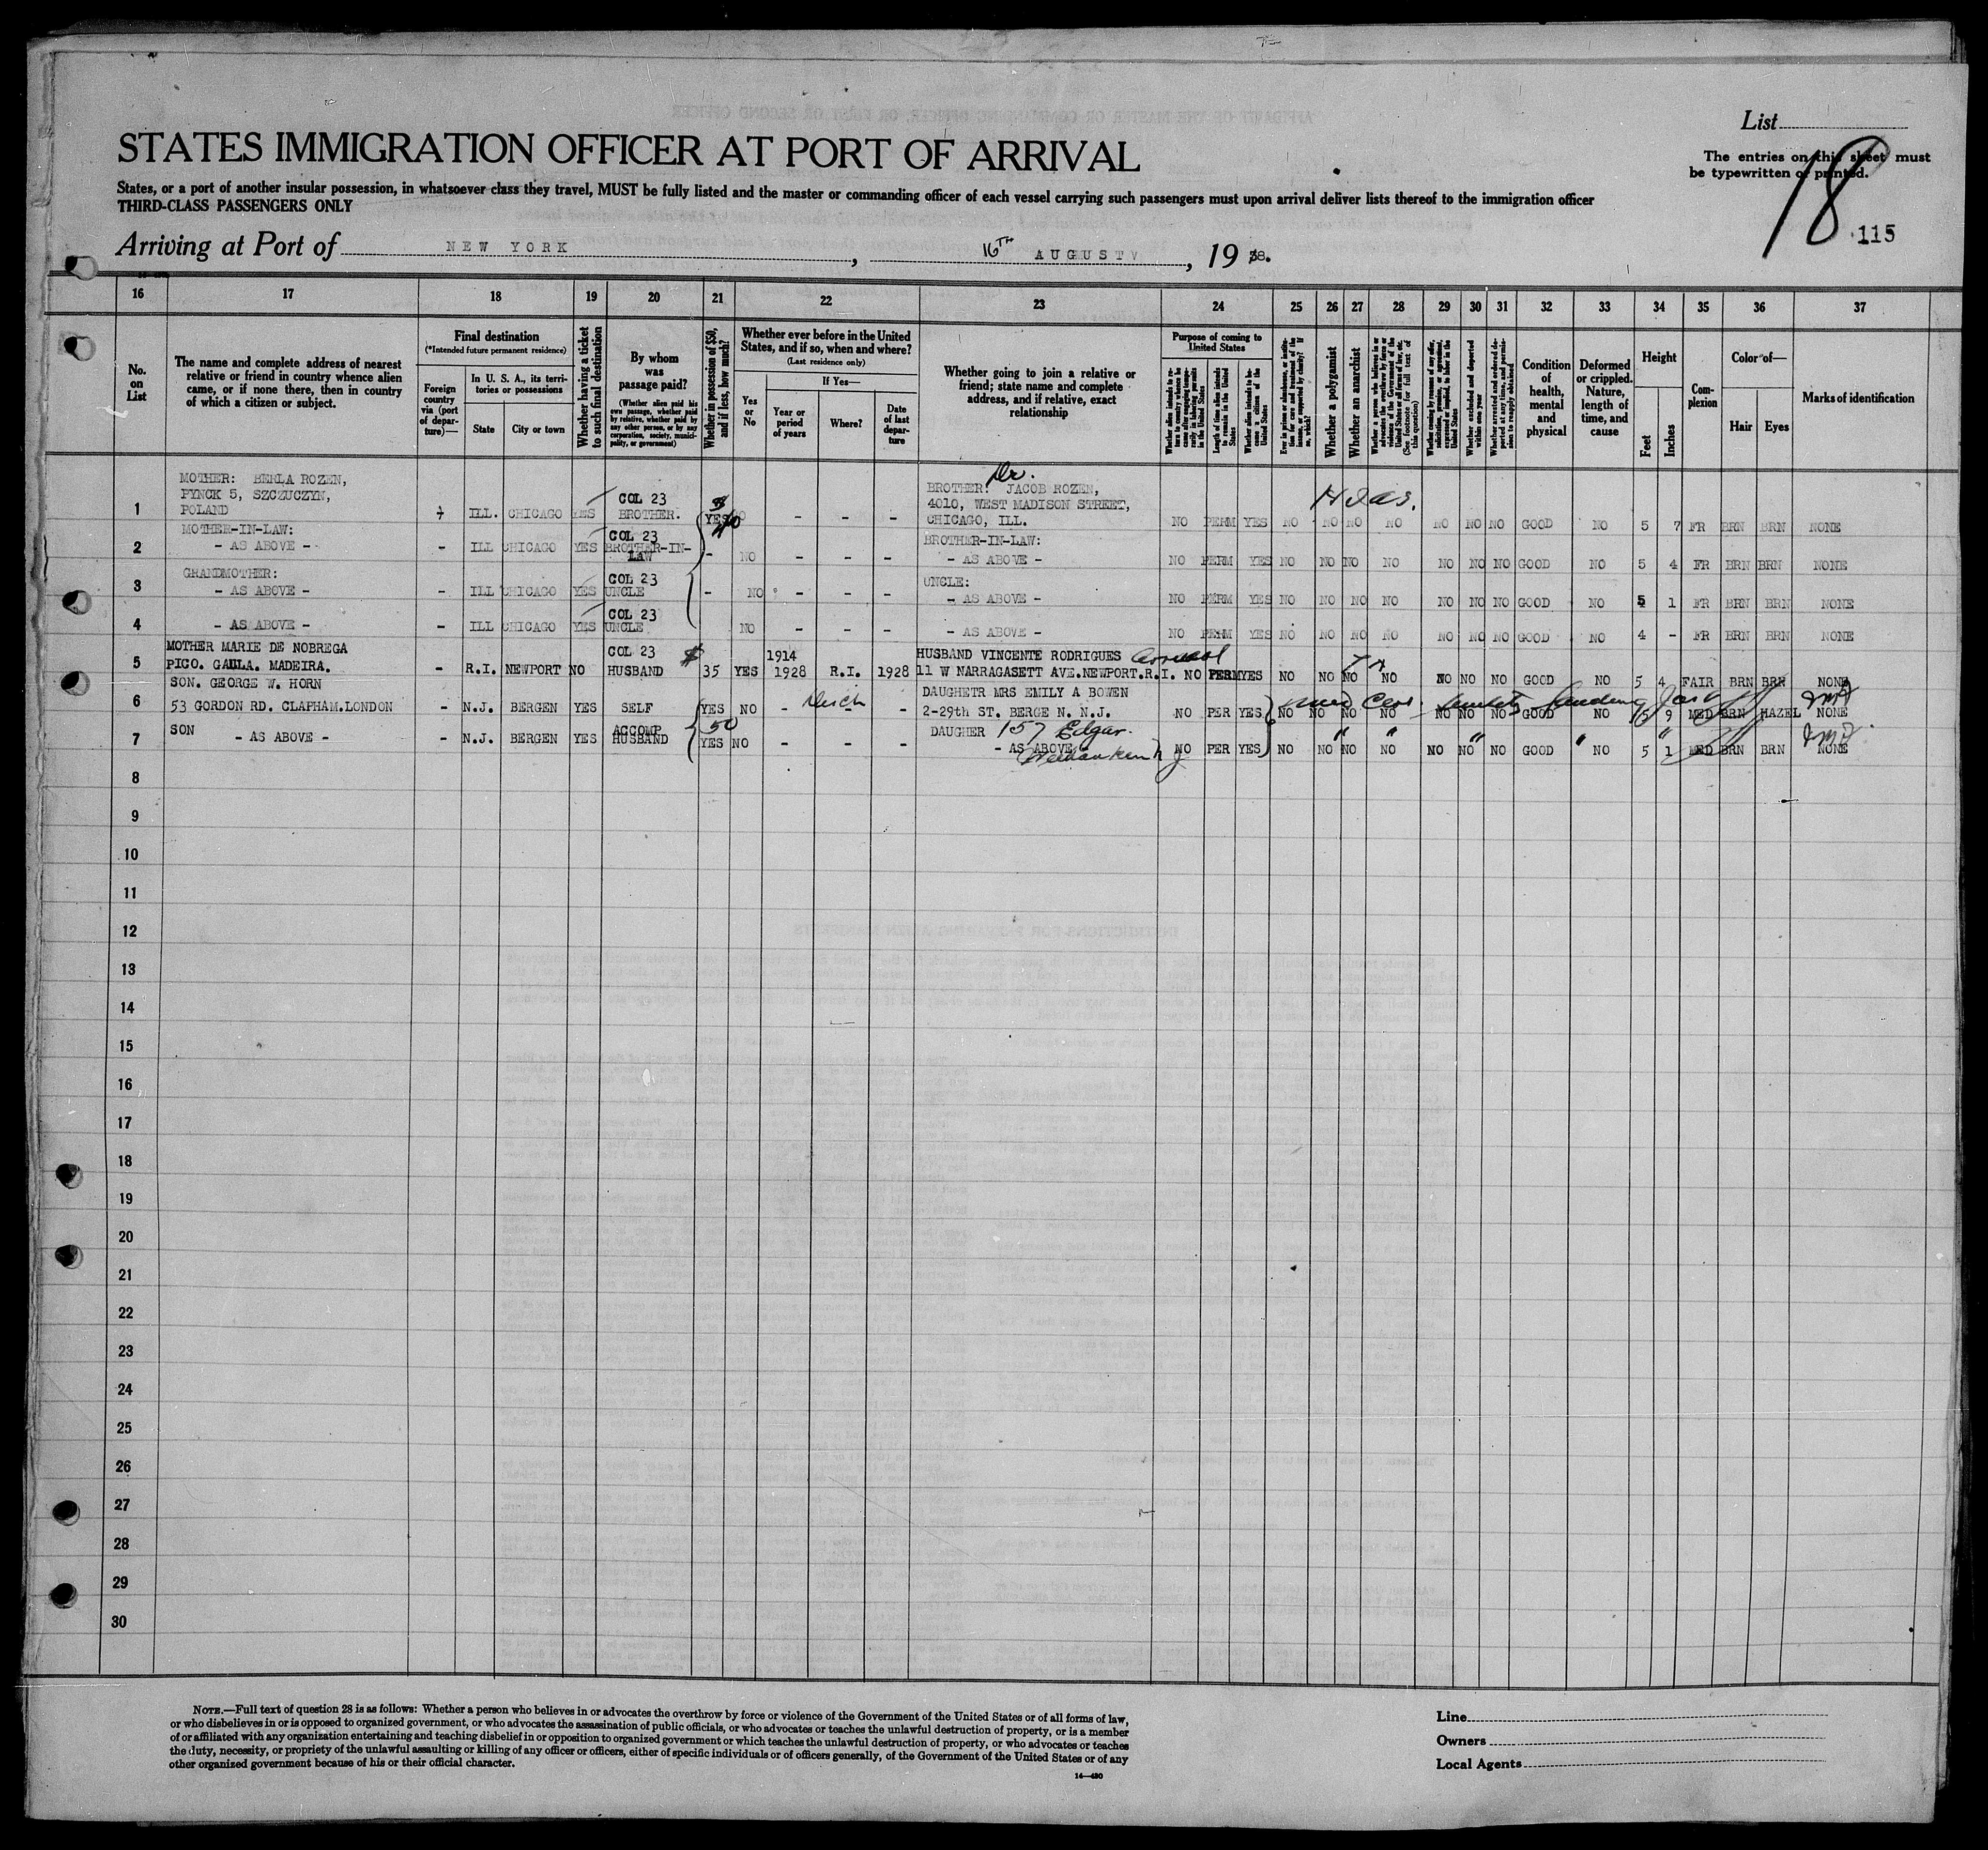 List
STATES IMMIGRATION OFFICER AT PORT OF ARRIVAL
The entries on this sheet must
be typewritten or printed.
18
115
States, or a port of another insular possession, in whatsoever class they travel, MUST be fully listed and the master or commanding officer of each vessel carrying such passengers must upon arrival deliver lists thereof to the immigration officer
THIRD-CLASS PASSENGERS ONLY
Arriving at Port of NEW YORK, 16TH AUGUST, 1938.
16 17 18 19 20 21 22 23 24 25 26 27 28 29 30 31 32 33 34 35 36 37
No. on List
The name and complete address of nearest relative or friend in country whence alien came, or if none there, then in country of which a citizen or subject.
Final destination
(*Intended future permanent residence)
Foreign country via (port of departure)—
In U. S. A., its territories or possessions
State
City or town
Whether having a ticket to such final destination
By whom was passage paid?
(Whether alien paid his own passage, whether paid by relative, whether paid by any other person, or by any corporation, society, municipality, or government)
Whether in possession of $50, and if less, how much?
Whether ever before in the United States, and if so, when and where?
(Last residence only)
Yes or No
If Yes—
Year or period of years
Where?
Date of last departure
Whether going to join a relative or friend; state name and complete address, and if relative, exact relationship
Purpose of coming to United States
Length of time alien intends to remain in the United States
Whether alien intends to become a citizen of the United States
Whether a polygamist
Whether an anarchist
(See footnote for full text of this question)
Whether excluded and deported within one year
Condition of health, mental and physical
Deformed or crippled. Nature, length of time, and cause
Height
Feet
Inches
Complexion
Color of—
Hair
Eyes
Marks of identification
1 MOTHER: BERLA ROZEN,
PYNCK 5, SZCZUCZYN,
POLAND ILL. CHICAGO YES COL 23 BROTHER. YES - - - Dr. BROTHER: JACOB ROZEN,
4010, WEST MADISON STREET,
CHICAGO, ILL. NO PERM YES NO NO NO NO NO NO NO GOOD NO 5 7 FR BRN BRN NONE
2 MOTHER-IN-LAW:
- AS ABOVE - - ILL CHICAGO YES COL 23 BROTHER-IN-LAW - NO - - - BROTHER-IN-LAW:
- AS ABOVE - NO PERM YES NO NO NO NO NO NO NO GOOD NO 5 4 FR BRN BRN NONE
3 GRANDMOTHER:
- AS ABOVE - - ILL CHICAGO YES COL 23 UNCLE - NO - - - UNCLE:
- AS ABOVE - NO PERM YES NO NO NO NO NO NO NO GOOD NO 5 1 FR BRN BRN NONE
4 - AS ABOVE - - ILL CHICAGO YES COL 23 UNCLE NO - - - - AS ABOVE - NO PERM YES NO NO NO NO NO NO NO GOOD NO 4 - FR BRN BRN NONE
5 MOTHER MARIE DE NOBREGA
PICO. GAULA. MADEIRA. - R.I. NEWPORT NO COL 23 HUSBAND $ 35 YES 1914 1928 R.I. 1928 HUSBAND VINCENTE RODRIGUES
11 W NARRAGASETT AVE.NEWPORT.R.I. NO PERM YES NO NO NO NO NO NO NO GOOD NO 5 4 FAIR BRN BRN NONE
6 SON. GEORGE W. HORN
53 GORDON RD. CLAPHAM.LONDON - N.J. BERGEN YES SELF YES NO - - - DAUGHETR MRS EMILY A BOWEN
2-29th ST. BERGE N. N.J. NO PER YES NO NO NO NO NO NO NO GOOD NO 5 9 MED BRN HAZEL NONE
7 SON
- AS ABOVE - - N.J. BERGEN YES ACCOMP HUSBAND 50 YES NO - - - DAUGHER 157 Edgar.
- AS ABOVE NO PER YES NO NO NO NO NO NO NO GOOD NO 5 1 MED BRN BRN NONE
8
9
10
11
12
13
14
15
16
17
18
19
20
21
22
23
24
25
26
27
28
29
30
NOTE.—Full text of question 28 is as follows: Whether a person who believes in or advocates the overthrow by force or violence of the Government of the United States or of all forms of law,
or who disbelieves in or is opposed to organized government, or who advocates the assassination of public officials, or who advocates or teaches the unlawful destruction of property, or is a member
of or affiliated with any organization entertaining and teaching disbelief in or opposition to organized government or which teaches the unlawful destruction of property, or who advocates or teaches
the duty, necessity, or propriety of the unlawful assaulting or killing of any officer or officers, either of specific individuals or of officers generally, of the Government of the United States or of any
other organized government because of his or their official character.
14—430
Line
Owners
Local Agents